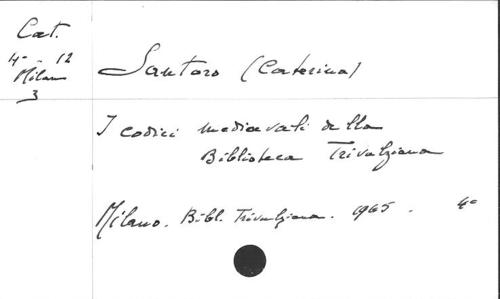 Cat.
4° - 12
Milan
3
Santoro (Caterina)
I codici medievali della
Biblioteca Trivulziana
Milano. Bibl. Trivulziana. 1965. 4°